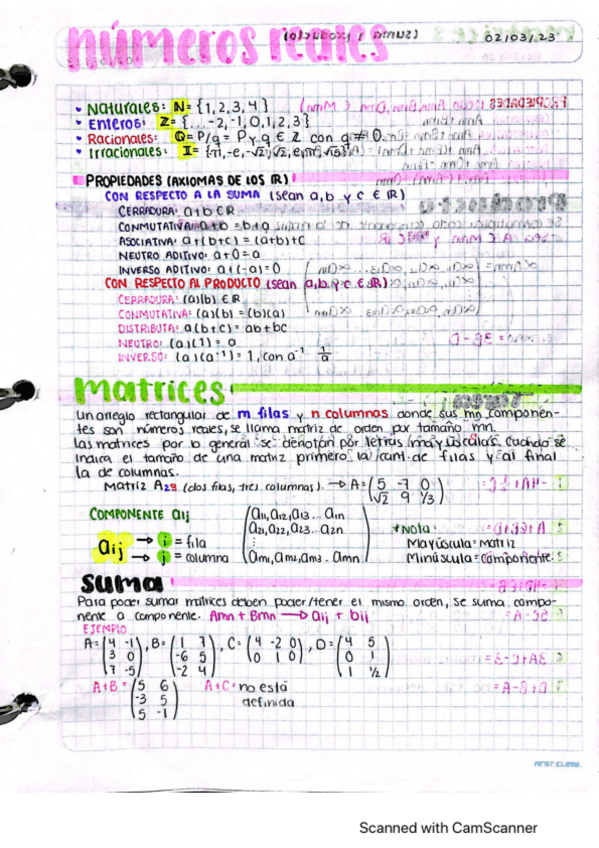 números reales
(suma y producto)
02/03/23
• Naturales: N= {1,2,3,4}
• Enteros: Z= {... -2,-1,0,1,2,3}
• Racionales: Q= P/q = P y q ∈ Z con q ≠ 0.
• Irracionales: I= {π,-e,-√2,√2,e,π,√13}
PROPIEDADES (AXIOMAS DE LOS IR)
CON RESPECTO A LA SUMA (sean a,b y c ∈ IR)
CERRADURA: a+b ∈ R
CONMUTATIVA: a+b = b+a
ASOCIATIVA: a+(b+c) = (a+b)+c
NEUTRO ADITIVO: a+0=a
INVERSO ADITIVO: a+(-a)=0
CON RESPECTO AL PRODUCTO (sean a,b y c ∈ IR)
CERRADURA: (a)(b) ∈ R
CONMUTATIVA: (a)(b) = (b)(a)
DISTRIBUTA: a(b+c) = ab+bc
NEUTRO: (a)(1) = a
INVERSO: (a)(a⁻¹) = 1, con a⁻¹ 1/a
Matrices
Un arreglo rectangular de m filas y n columnas donde sus mn componen-
tes son números reales, se llama matriz de orden por tamaño mn.
Las matrices por lo general se denotan por letras mayúsculas. Cuando se
indica el tamaño de una matriz primero la cant. de filas y al final
la de columnas.
Matriz A23 (dos filas, tres columnas). → A= (5 -7 0
√2 9 1/3)
COMPONENTE aij
aij → i = fila
→ j = columna
(a11, a12, a13 ... a1n
a21, a22, a23 ... a2n
⋮
am1, am2, am3 ... amn)
*Nota:
Mayúscula=Matriz
Minúscula=Componente
Suma
Para poder sumar matrices deben poder/tener el mismo orden, se suma compo-
nente a componente. Amn + Bmn → aij + bij
EJEMPLO
A= (4 -1
3 0
7 -5), B= (1 7
-6 5
-2 4), C= (4 -2 0
0 1 0), D= (4 5
0 1
1 1/2)
A+B = (5 6
-3 5
5 -1)
A+C = no está
definida
FIRST CLASS.
Scanned with CamScanner